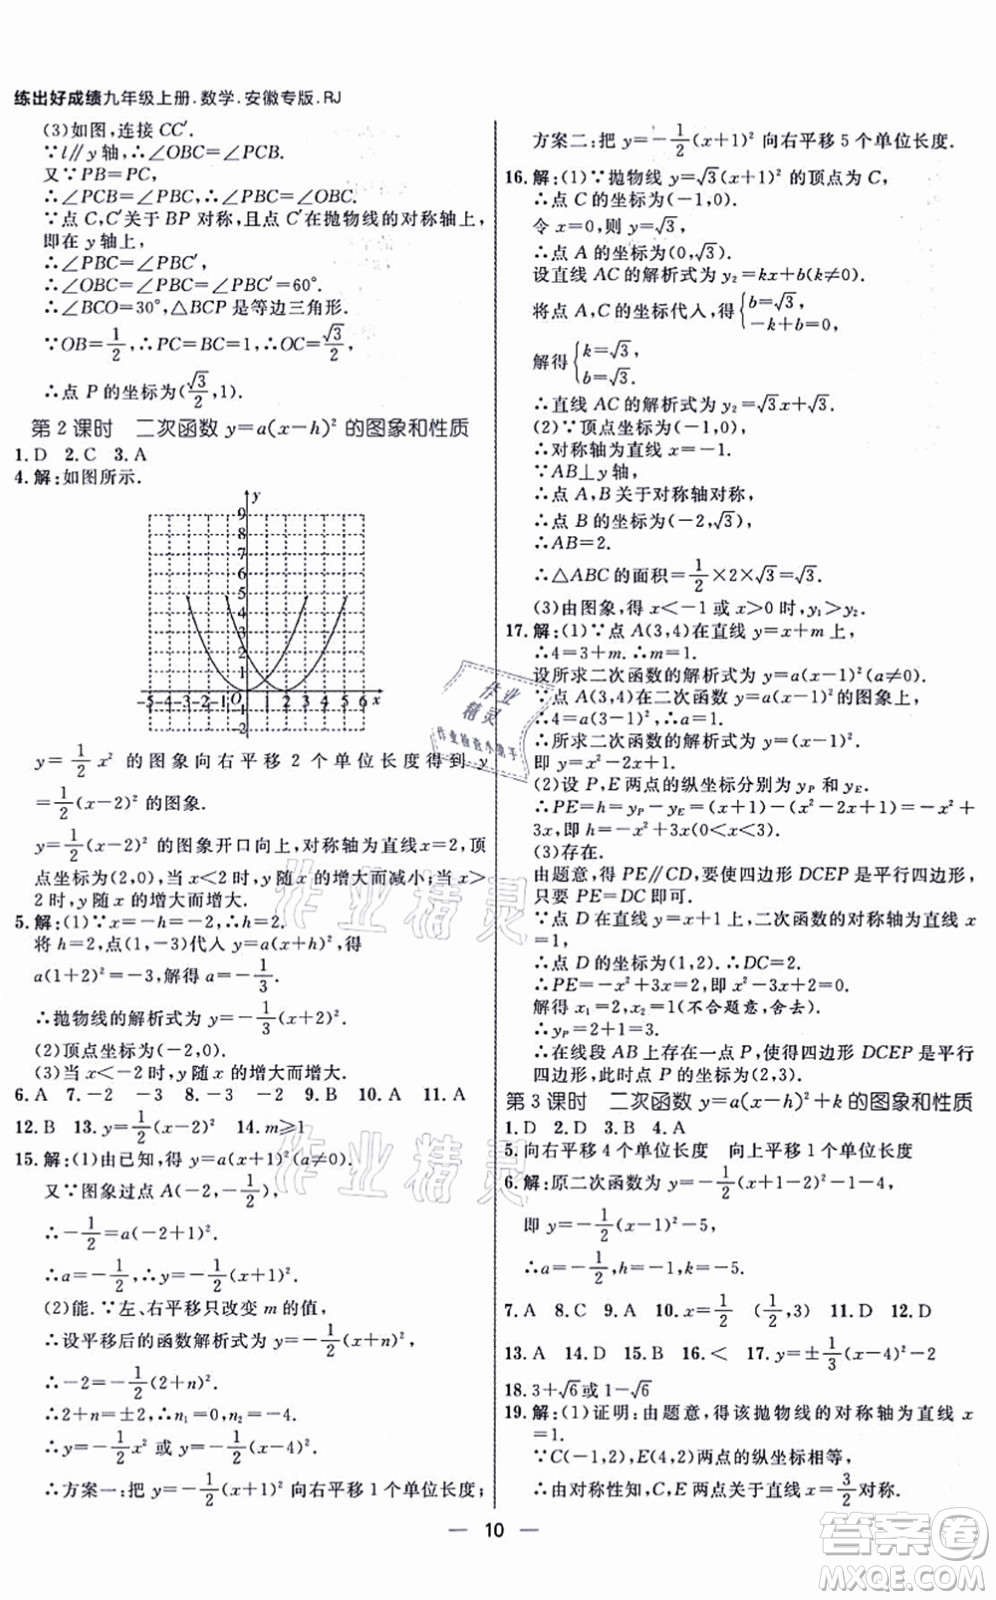 练出好成绩九年级上册.数学.安徽专版.RJ
(3)如图,连接 CC′.
∵l∥y 轴,∴∠OBC=∠PCB.
又∵PB=PC,
∴∠PCB=∠PBC,∴∠PBC=∠OBC.
∵点 C,C′关于 BP 对称,且点 C′在抛物线的对称轴上,
即在 y 轴上,
∴∠PBC=∠PBC′.
∴∠OBC=∠PBC=∠PBC′=60°.
∴∠BCO=30°,△BCP 是等边三角形.
∵OB=1/2,∴PC=BC=1.∴OC=√3/2,
∴点 P 的坐标为(√3/2,1).
第 2 课时 二次函数 y=a(x−h)² 的图象和性质
1. D 2. C 3. A
4. 解:如图所示.
y
9
8
7
6
5
4
3
2
1
-5-4-3-2-1 O 1 2 3 4 5 6 x
y=1/2 x² 的图象向右平移 2 个单位长度得到 y
=1/2(x−2)² 的图象.
y=1/2(x−2)² 的图象开口向上,对称轴为直线x=2,顶
点坐标为(2,0),当 x<2 时,y 随 x 的增大而减小;当 x>
2 时,y 随 x 的增大而增大.
5. 解:(1)∵x=−h=−2,∴h=2.
将 h=2,点(1,−3)代入 y=a(x+h)²,得
a(1+2)²=−3,解得 a=−1/3.
∴抛物线的解析式为 y=−1/3(x+2)².
(2)顶点坐标为(−2,0).
(3)当 x<−2 时,y 随 x 的增大而增大.
6. A 7. −2 −3 8. −3 −2 9. B 10. A 11. A
12. B 13. y=1/2(x−2)² 14. m≥1
15. 解:(1)由已知,得 y=a(x+1)²(a≠0).
又∵图象过点 A(−2,−1/2),
∴−1/2=a(−2+1)².
∴a=−1/2,∴y=−1/2(x+1)².
(2)能.∵左、右平移只改变 m 的值,
∴设平移后的函数解析式为 y=−1/2(x+n)²,
∴−2=−1/2(2+n)².
∴2+n=±2,∴n₁=0,n₂=−4.
∴y=−1/2x² 或 y=−1/2(x−4)².
∴方案一:把 y=−1/2(x+1)² 向右平移 1 个单位长度;
方案二:把 y=−1/2(x+1)² 向右平移 5 个单位长度.
16. 解:(1)∵抛物线 y=√3(x+1)² 的顶点为 C,
∴点 C 的坐标为(−1,0).
令 x=0,则 y=√3,
∴点 A 的坐标为(0,√3).
设直线 AC 的解析式为 y₂=kx+b(k≠0),
将点 A,C 的坐标代入,得{b=√3, −k+b=0,
解得{k=√3, b=√3.
∴直线 AC 的解析式为 y₂=√3x+√3.
(2)∵顶点坐标为(−1,0),
∴对称轴为直线 x=−1.
∵AB⊥y 轴,
∴点 A,B 关于对称轴对称,
∴点 B 的坐标为(−2,√3),
∴AB=2.
∴△ABC 的面积=1/2×2×√3=√3.
(3)由图象,得 x<−1 或 x>0 时,y₁>y₂.
17. 解:(1)∵点 A(3,4)在直线 y=x+m 上,
∴4=3+m.∴m=1.
设所求二次函数的解析式为 y=a(x−1)²(a≠0).
∵点 A(3,4)在二次函数 y=a(x−1)² 的图象上,
∴4=a(3−1)².∴a=1.
∴所求二次函数的解析式为 y=(x−1)²,
即 y=x²−2x+1.
(2)设 P,E 两点的纵坐标分别为 yP 和 yE.
∴PE=h=yP−yE=(x+1)−(x²−2x+1)=−x²+
3x,即 h=−x²+3x(0<x<3).
(3)存在.
由题意,得 PE∥CD,要使四边形 DCEP 是平行四边形,
只要 PE=DC 即可.
∵点 D 在直线 y=x+1 上,二次函数的对称轴为直线x
=1,
∴点 D 的坐标为(1,2).∴DC=2.
∴PE=−x²+3x=2.
解得 x₁=2,x₂=1(不合题意,舍去).
∴yP=2+1=3.
∴在线段 AB 上存在一点 P,使得四边形 DCEP 是平行
四边形,此时点 P 的坐标为(2,3).
第 3 课时 二次函数 y=a(x−h)²+k 的图象和性质
1. D 2. D 3. B 4. A
5. 向右平移 4 个单位长度 向上平移 1 个单位长度
6. 解:原二次函数为 y=−1/2(x+1−2)²−1−4,
即 y=−1/2(x−1)²−5,
∴a=−1/2,h=−1,k=−5.
7. A 8. C 9. A 10. x=1/2 (1/2,3) 11. D 12. D
13. A 14. D 15. B 16. < 17. y=±1/3(x−4)²−2
18. 3+√6或 1−√6
19. 解:(1)证明:由题意,得该抛物线的对称轴为直线 x
=1.
∵C(−1,2),E(4,2)两点的纵坐标相等,
∴由对称性知,C,E 两点关于直线 x=3/2 对称.
— 10 —
作业精灵
作业检查小助手
作业精灵
作业精灵
答案卷
MXQE.COM